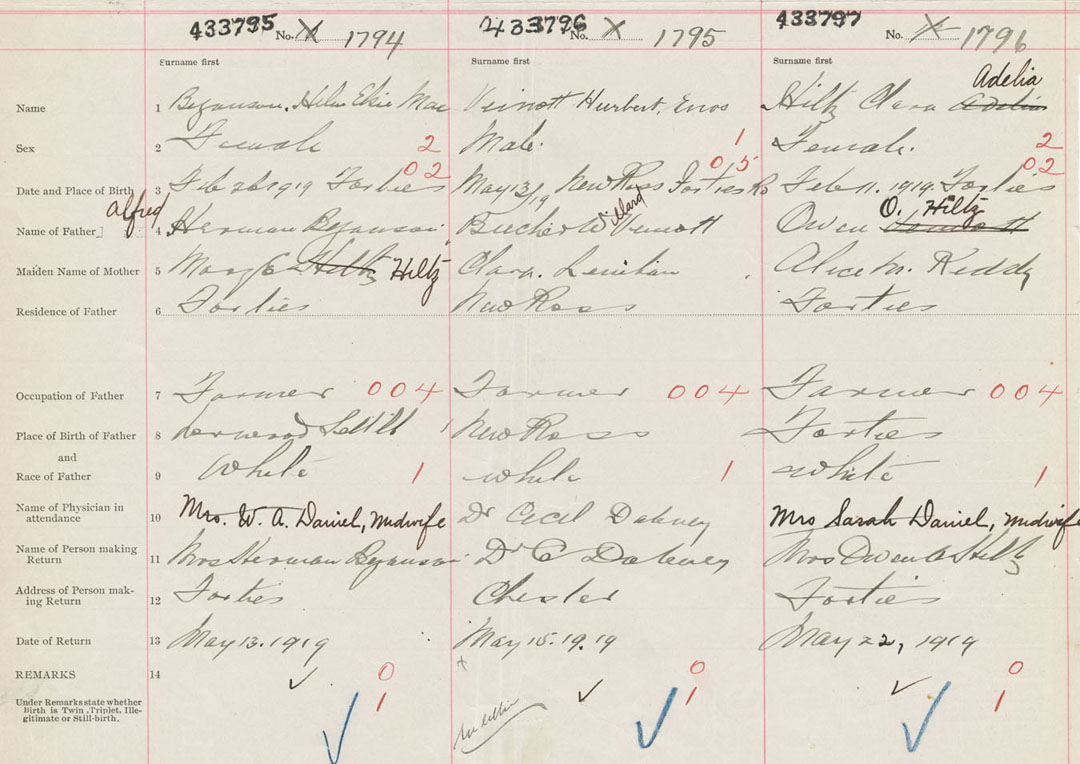 433795 No. X 1794 433796 No. X 1795 433797 No. X 1796
Surname first Surname first Surname first
Adelia
Name 1 Bezanson, Helen Elsie Mae Veinott Hurbert, Enos Hiltz Clara Adelia
Sex 2 Female 2 Male. 1 Female. 2
02 05 02
Date and Place of Birth 3 Feb 26 1919 Forties May 13/19 New Ross Forties Ro Feb 11. 1919. Forties
Alfred Willard O. Hiltz
Name of Father 4 Herman Bezanson Beecher W Veinott Owen Veinott
Maiden Name of Mother 5 Mary E Hiltz Hiltz Clara. Alice M. Reddy
Residence of Father 6 Forties New Ross Forties
Occupation of Father 7 Farmer 004 Farmer 004 Farmer 004
Place of Birth of Father 8 New Ross Forties
and
Race of Father 9 White 1 White 1 White 1
Name of Physician in
attendance 10 Mrs. W. A. Daniel, Midwife Dr Cecil Mrs Sarah Daniel, Midwife
Name of Person making
Return 11 Mrs Herman Bezanson Dr C Mrs Owen O Hiltz
Address of Person mak-
ing Return 12 Forties Chester Forties
Date of Return 13 May 13. 1919 May 15. 19.19 May 22, 1919
REMARKS 14 0 0 0
Under Remarks state whether
Birth is Twin, Triplet, Ille-
gitimate or Still-birth. 1 1 1